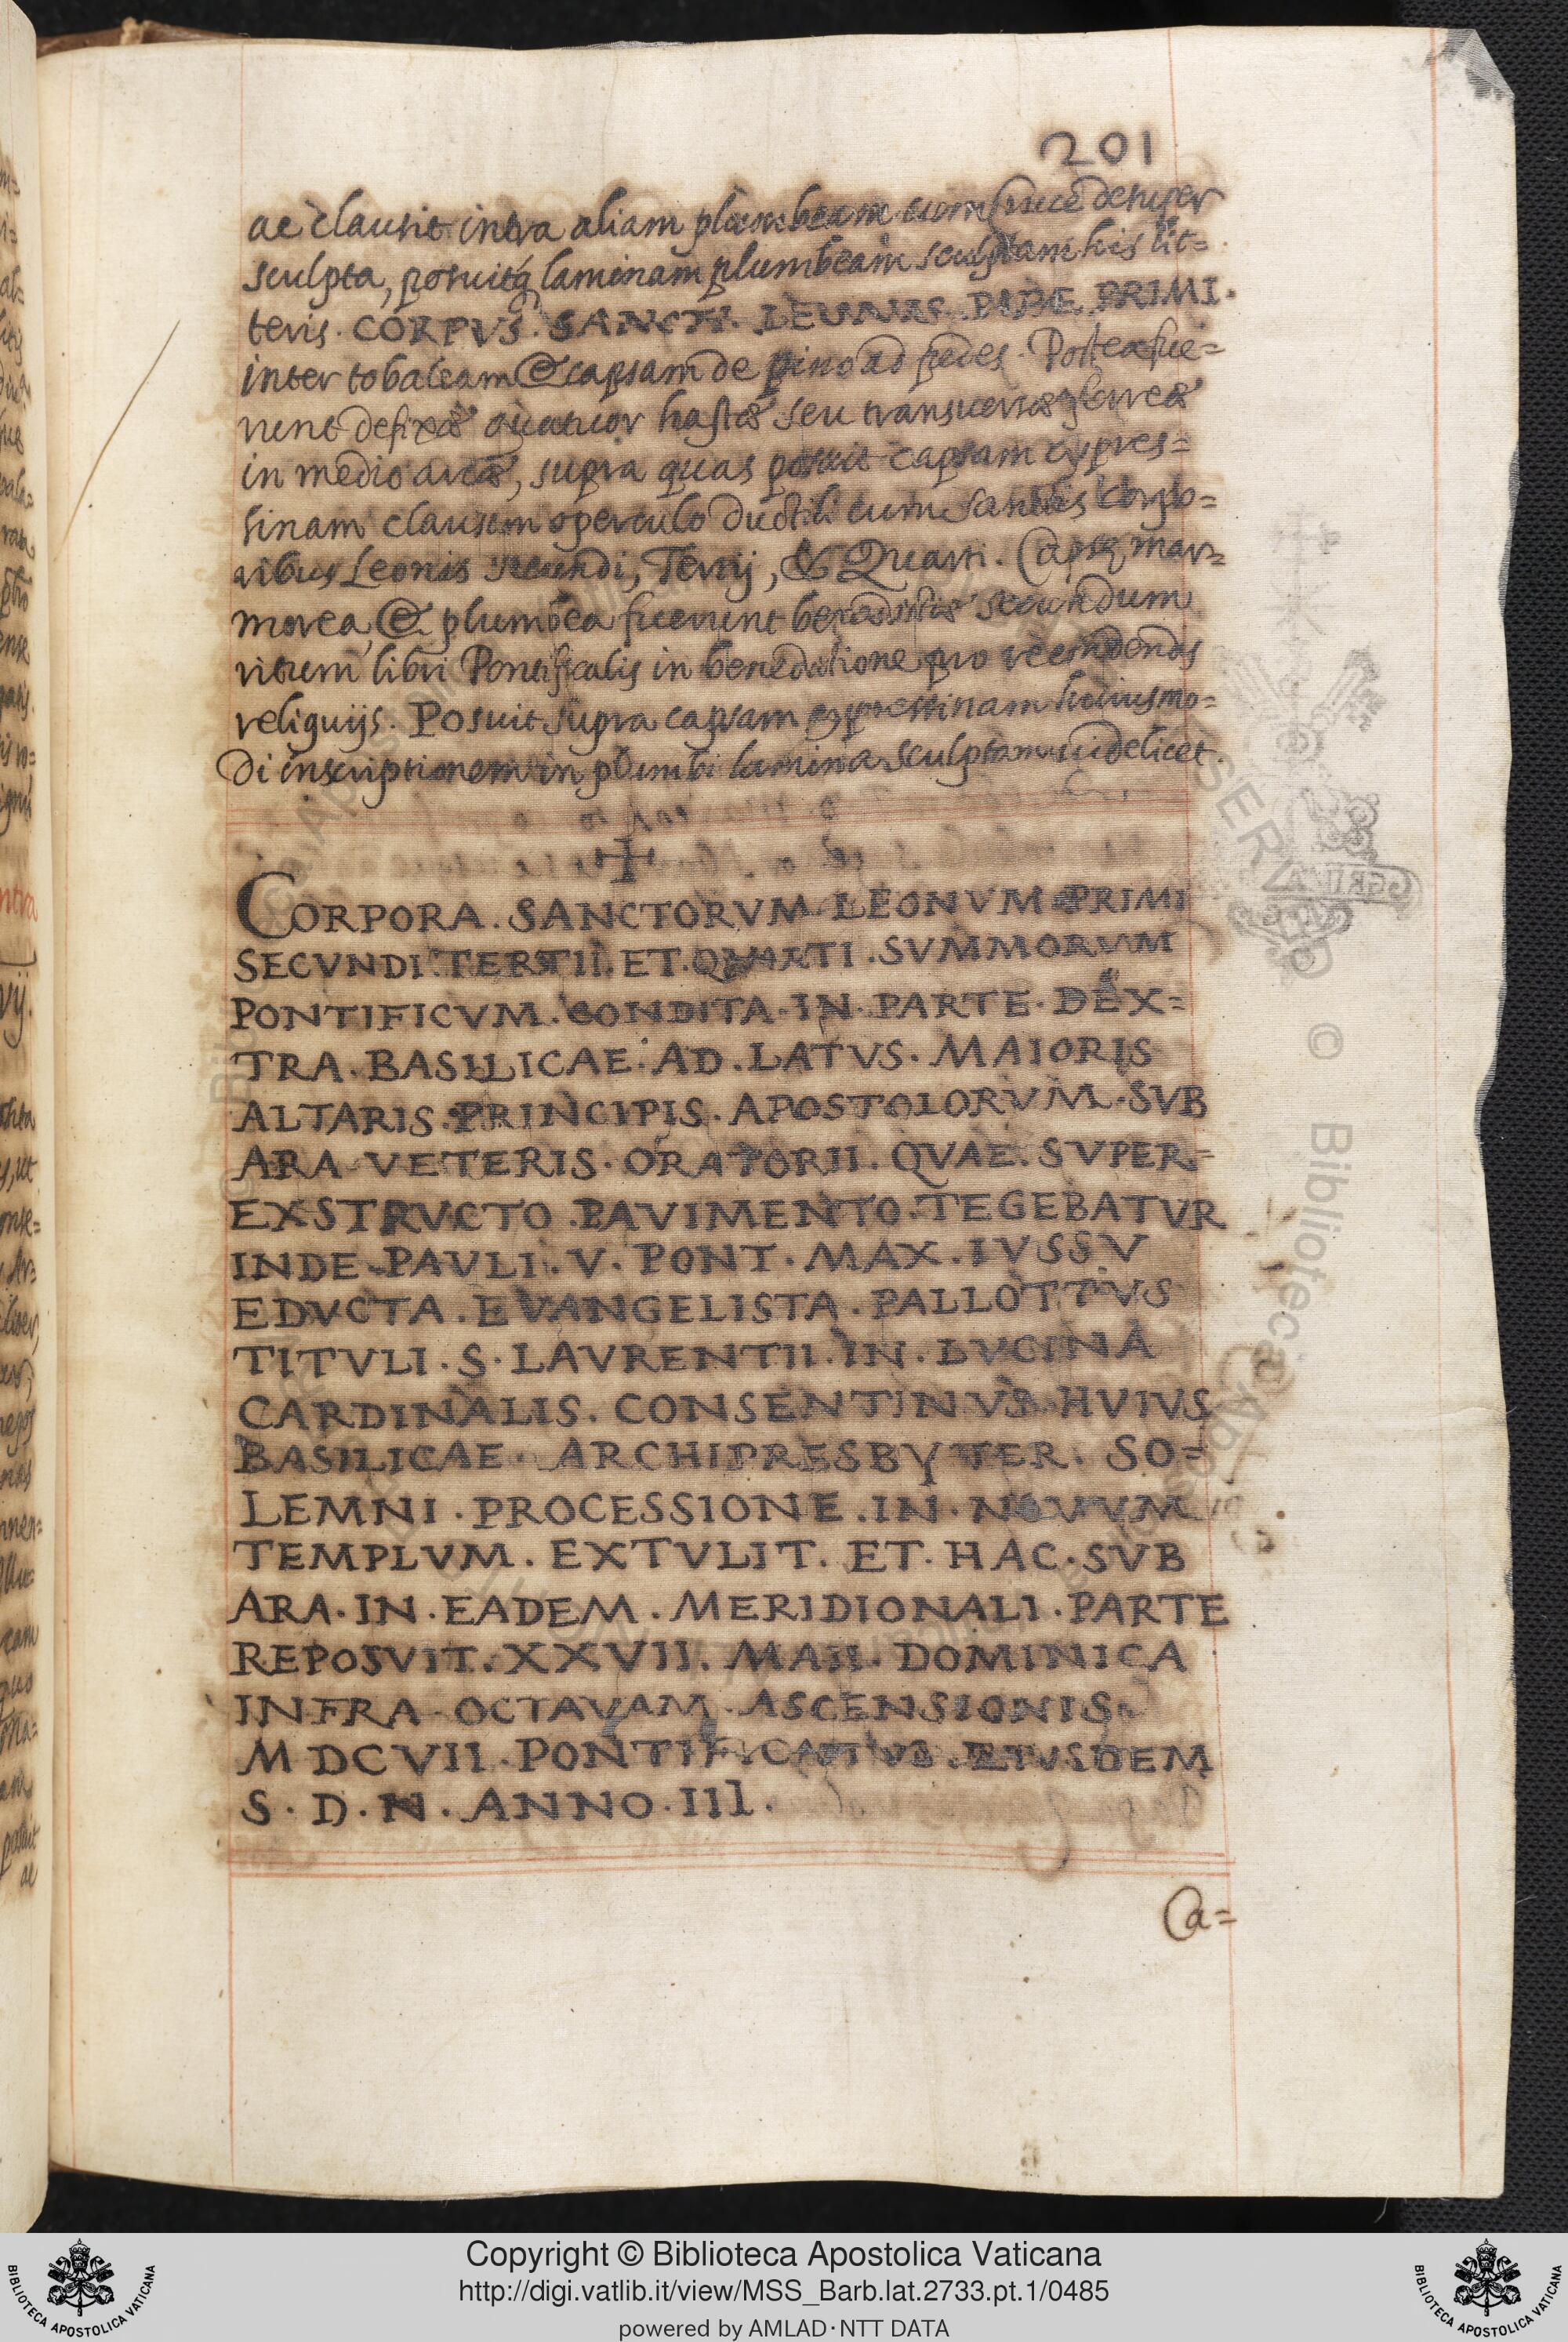 201
ac clausit intra aliam plumbeam cum cruce desuper
sculpta, posuitq; laminam plumbeam sculptam his lit=
teris. CORPVS. SANCTI. LEONIS. PAPE. PRIMI.
inter tobaleam & capsam de pino ad pedes. Postea fue=
runt defixæ quatuor hastæ seu transuersæ ferreæ
in medio arcæ, supra quas posuit capsam cypres=
sinam clausam operculo ductili cum sanctis corpo=
ribus Leonis secundi, Tertij, & Quarti. Capsæ mar=
morea, & plumbea fuerunt benedictæ secundum
ritum libri Pontificalis in benedictione pro recondendis
reliquijs. Posuit supra capsam cypressinam huiusmo=
di inscriptionem in plumbi lamina sculptam uidelicet.
+
CORPORA. SANCTORVM. LEONVM. PRIMI
SECVNDI. TERTII. ET. QVARTI. SVMMORVM
PONTIFICVM. CONDITA. IN. PARTE. DEX=
TRA. BASILICAE. AD. LATVS. MAIORIS
ALTARIS. PRINCIPIS. APOSTOLORVM. SVB
ARA VETERIS. ORATORII. QVAE. SVPER=
EXSTRVCTO. PAVIMENTO. TEGEBATVR
INDE. PAVLI. V. PONT. MAX. IVSSV
EDVCTA. EVANGELISTA. PALLOTTVS
TITVLI. S. LAVRENTII. IN. LVCINA
CARDINALIS. CONSENTINVS. HVIVS
BASILICAE. ARCHIPRESBYTER. SO=
LEMNI. PROCESSIONE. IN. NOVVM
TEMPLVM. EXTVLIT. ET. HAC. SVB
ARA. IN. EADEM. MERIDIONALI. PARTE
REPOSVIT. XXVII. MAII. DOMINICA
INFRA OCTAVAM. ASCENSIONIS
MDCVII. PONTIFICATVS. EIVSDEM
S. D. N. ANNO. III.
Ca=
Copyright © Biblioteca Apostolica Vaticana
http://digi.vatlib.it/view/MSS_Barb.lat.2733.pt.1/0485
powered by AMLAD·NTT DATA
BIBLIOTECA APOSTOLICA VATICANA
BIBLIOTECA APOSTOLICA VATICANA